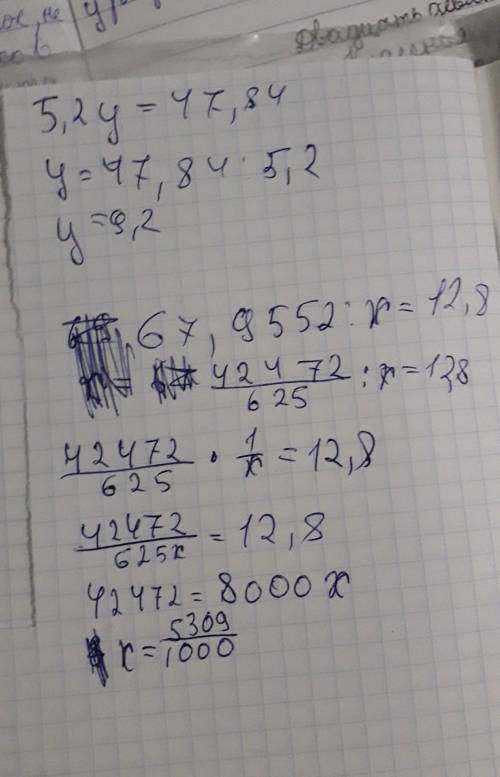 двадцать
5,2y = 47,84
y = 47,84 : 5,2
y = 9,2
67,9552 : x = 12,8
42472/625 : x = 12,8
42472/625 · 1/x = 12,8
42472/625x = 12,8
42472 = 8000x
x = 5309/1000